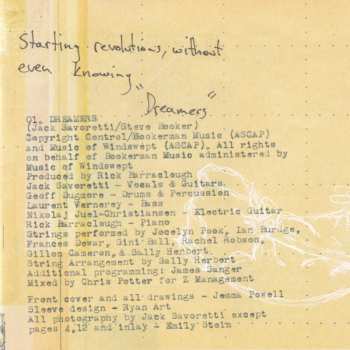 Starting revolutions, without
even knowing
"Dreamers"
01. DREAMERS
(Jack Savoretti/Steve Booker)
Copyright Control/Bookerman Music (ASCAP)
and Music of Windswept (ASCAP). All rights
on behalf of Bookerman Music administered by
Music of Windswept
Produced by Rick Barraclough
Jack Savoretti - Vocals & Guitars
Geoff Dugmore - Drums & Percussion
Laurent Verneray - Bass
Nikolaj Juel-Christiansen - Electric Guitar
Rick Barraclough - Piano
Strings performed by Jocelyn Pook, Ian Burdge,
Frances Dewar, Gini Ball, Rachel Robson,
Gillon Cameron, & Sally Herbert.
String Arrangement by Sally Herbert
Additional programming: James Sanger
Mixed by Chris Potter for Z Management
Front cover and all drawings - Jemma Powell
Sleeve design - Ryan Art
All photography by Jack Savoretti except
pages 4,12 and inlay - Emily Stein